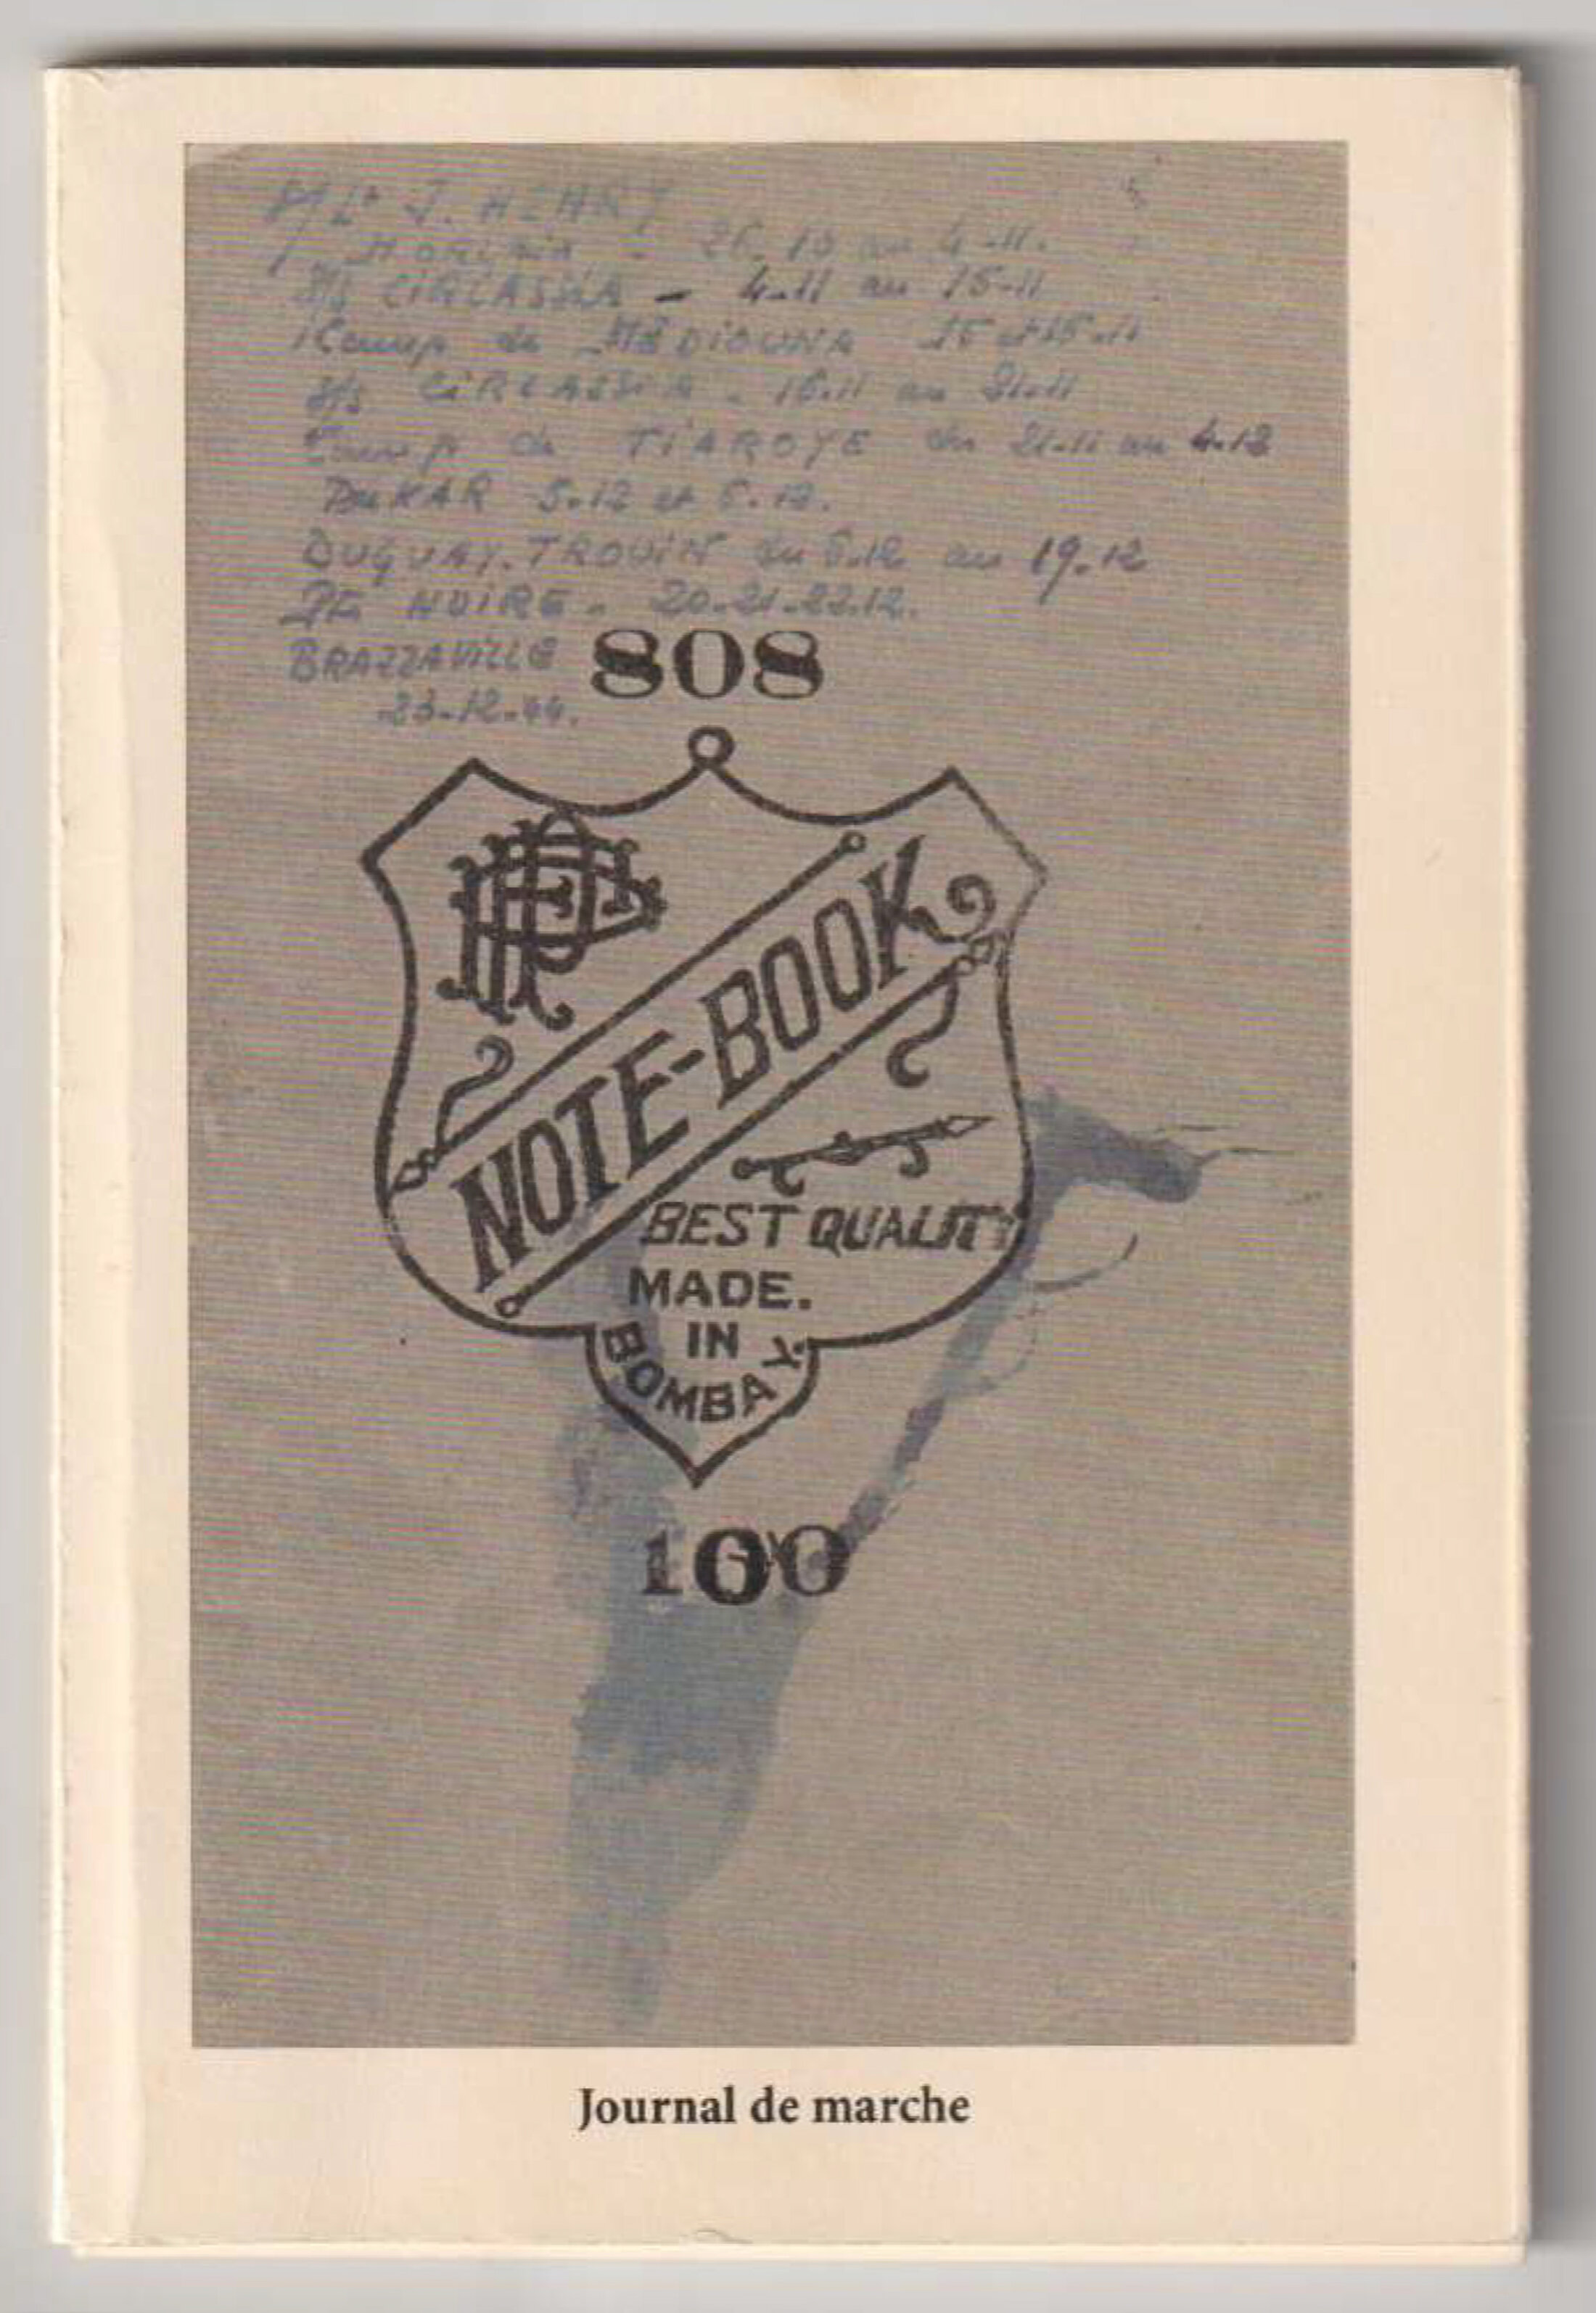 S/Lt J. HENRY
MORLAIX - 26.10 au 4-11.
S/S CIRCASSIA - 4-11 au 15-11
Camp de MÉDIOUNA 15 et 16-11
S/S CIRCASSIA - 16.11 au 21-11
Camp de TIAROYE du 21-11 au 4-12
DAKAR 5.12 et 6.12.
DUGUAY.TROUIN du 6.12 au 19.12
PTE NOIRE - 20-21-22.12.
BRAZZAVILLE
23-12-44.
808
NOTE-BOOK
BEST QUALITY
MADE.
IN
BOMBAY
100
Journal de marche